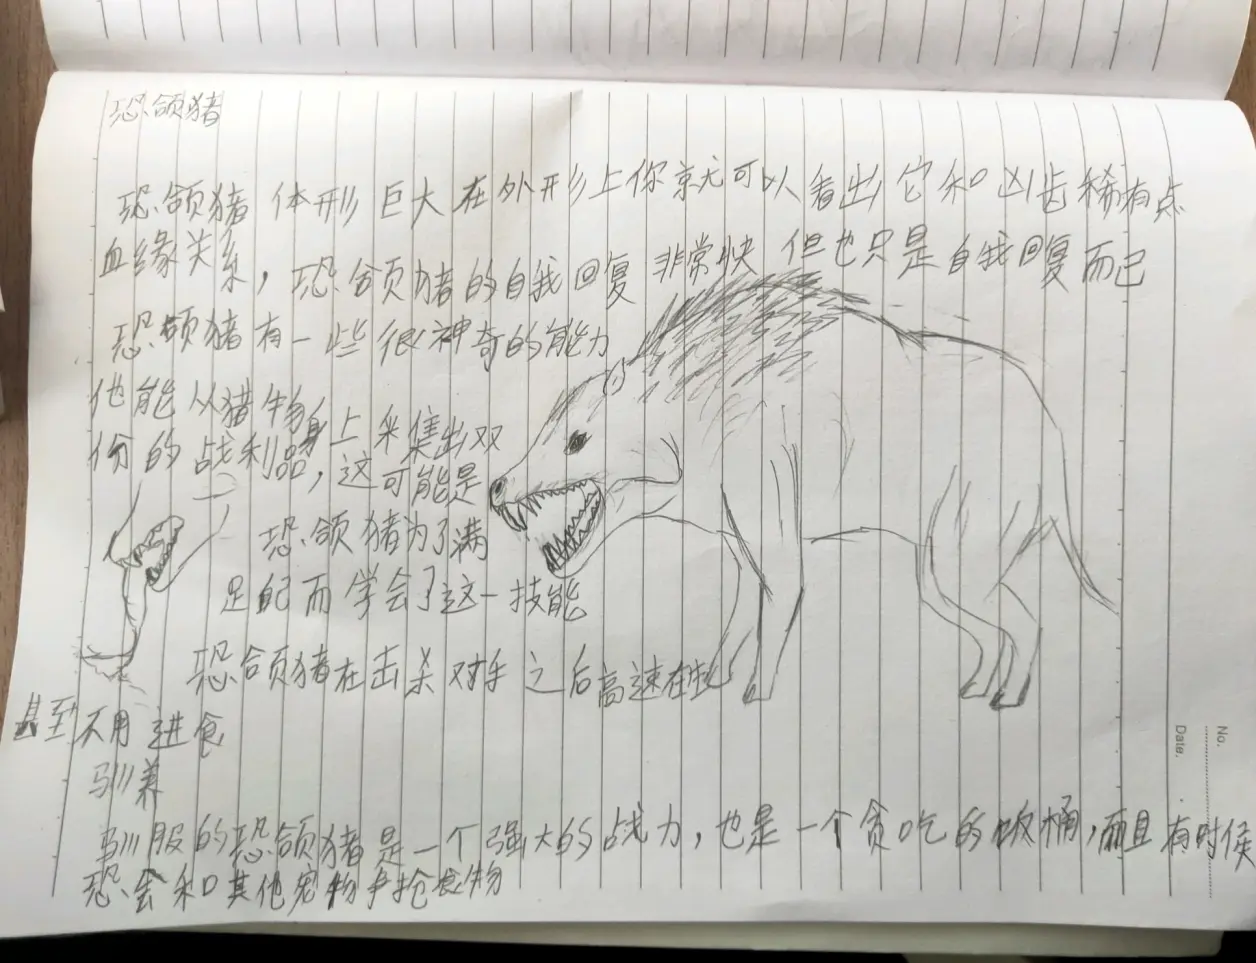 恐颌猪
恐颌猪 体形 巨大 在外形上你就可以看出它和凶齿豨有点
血缘关系，恐颌猪的自我回复 非常快 但也只是自我回复而已
恐颌猪有一些很神奇的能力
他能从猎物身上采集出双
份的战利品，这可能是
恐颌猪为了满
足配而学会了这一技能
恐颌猪在击杀对手之后高速在生
甚至不用进食
驯养
驯服的恐颌猪是一个强大的战力，也是一个贪吃的饭桶，而且有时候
恐会和其他宠物争抢食物
No.
Date.